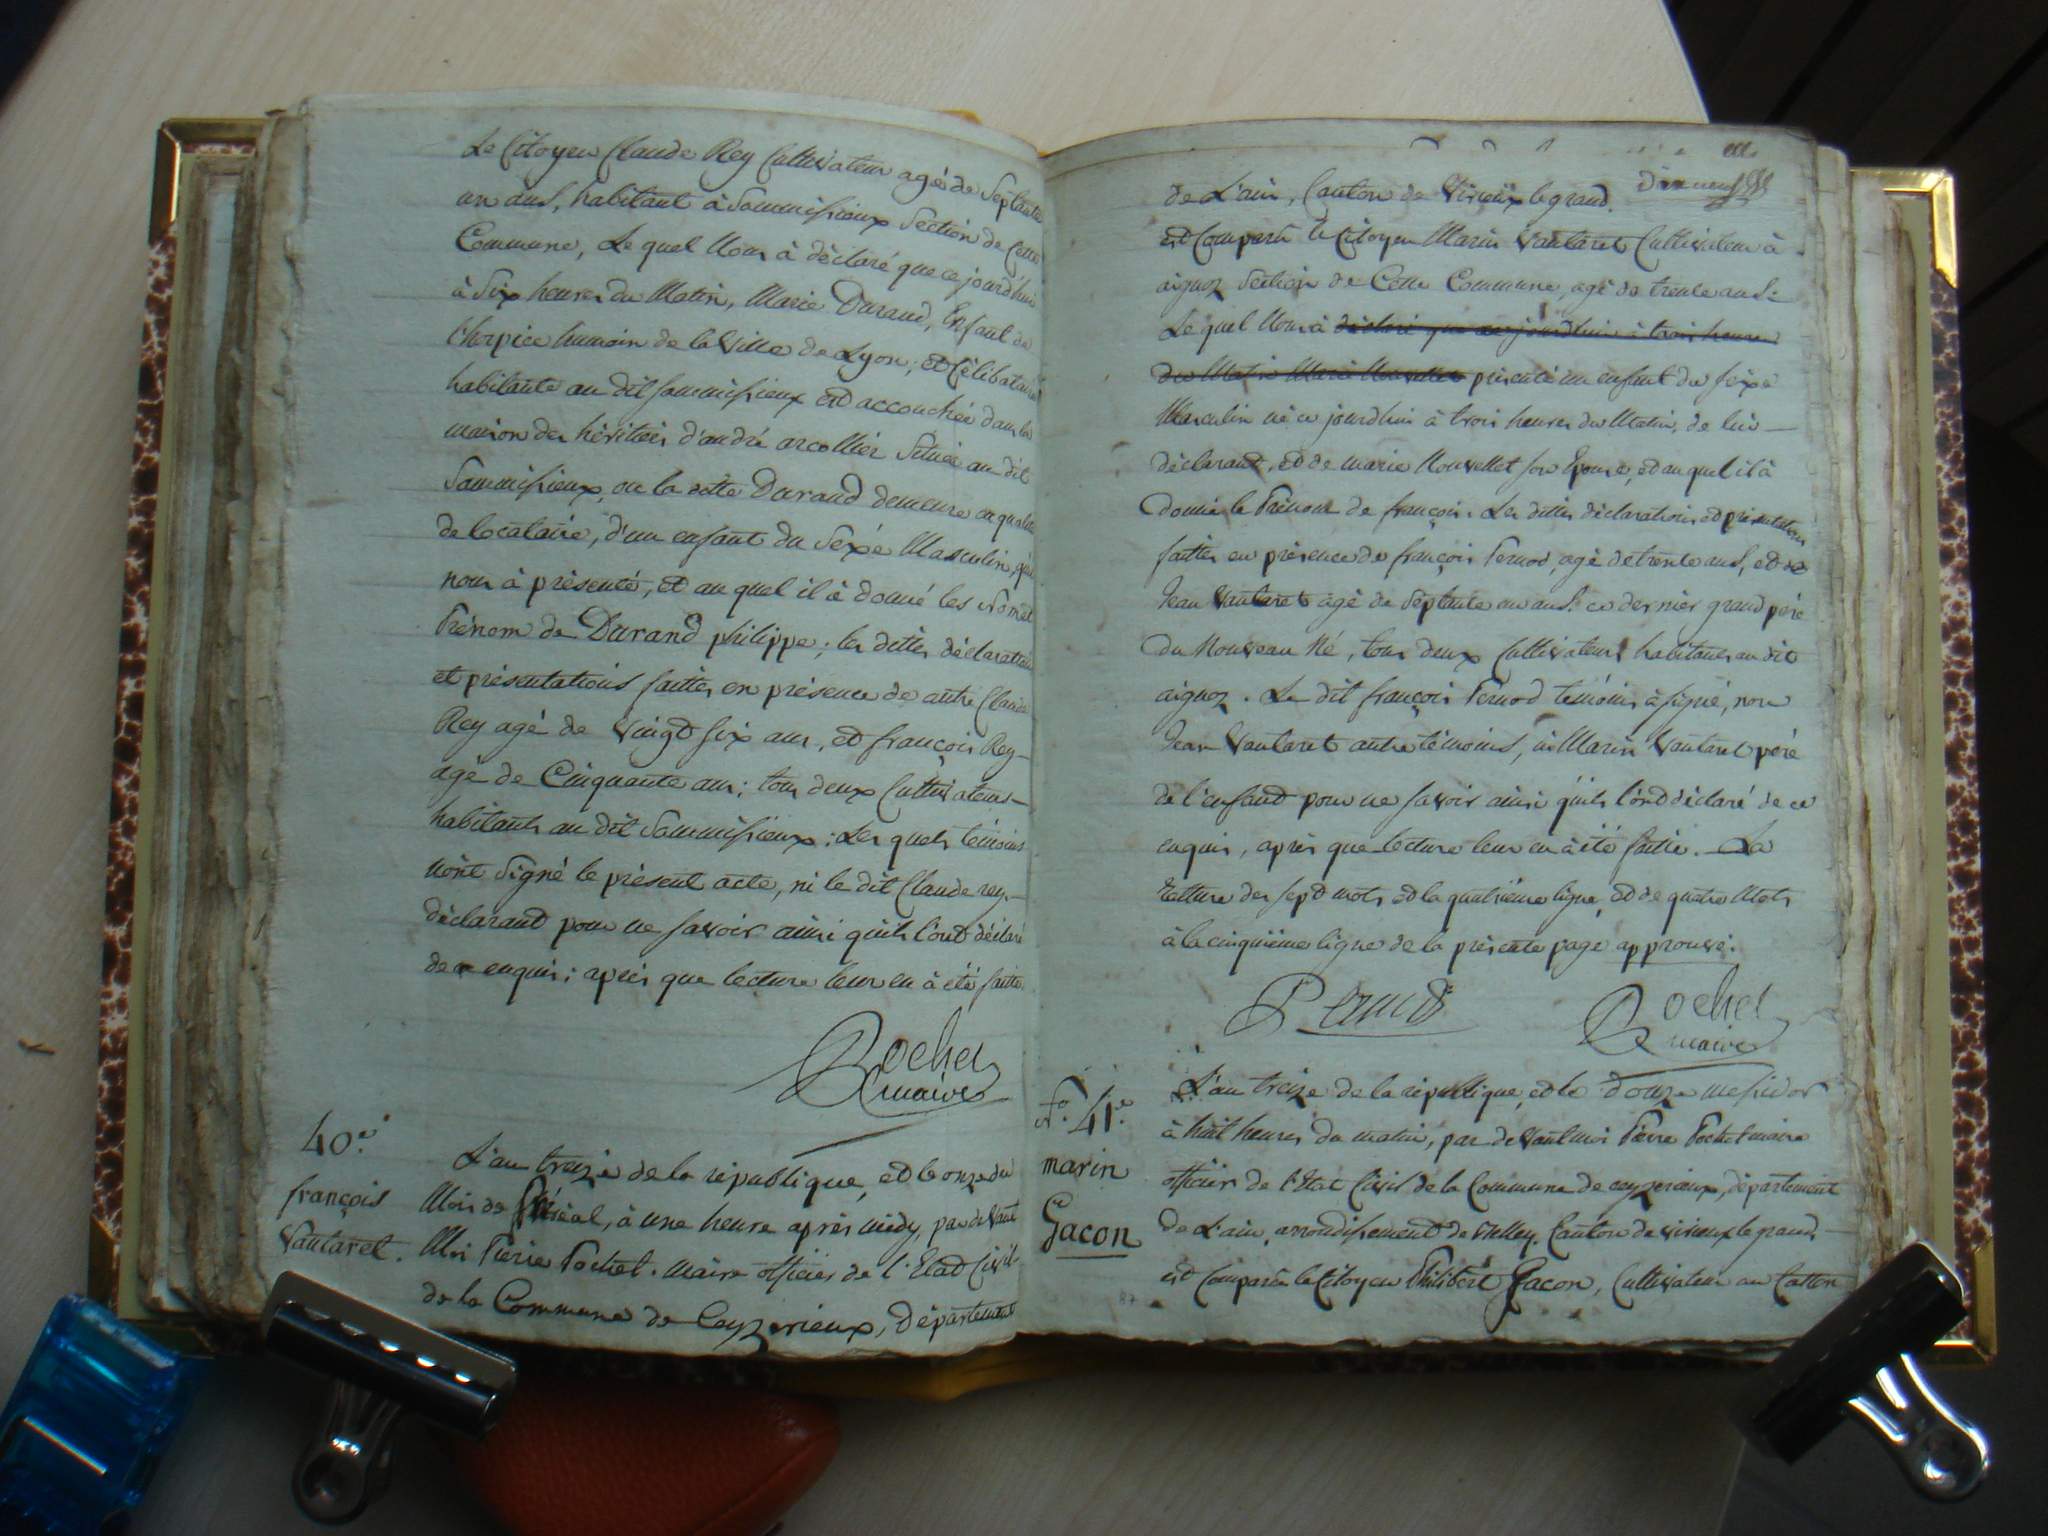 Le Citoyen Claude Rey Cultivateur agé de Septante
un ans, habitant à Sommissieux Section de Cette
Commune, Le quel Nous à déclaré que ce jourd'hui
à Six heures du Matin, Marie Durand, Enfant de
l'hospice humain de la Ville de Lyon; et Célibataire
habitante au dit Sommissieux est accouchée dans la
maison des héritiers d'andré arcollier Située au dit
Sommissieux, ou la ditte Durand demeure en qualité
de locataire, d'un enfant du Sexe Masculin, qu'il
nous à présenté, et au quel il à donné les Nom et
Prénom de Durand philippe; les dittes déclarations
et présentations faittes en présence de autre Claude
Rey agé de Vingt six ans, et françois Rey
agé de Cinquante ans; tous deux Cultivateurs
habitants au dit Sommissieux: Les quels témoins
nont Signé le présent acte, ni le dit Claude rey
déclarant pour ne savoir ainsi quils l'ont déclaré
de ce enquis; après que lecture leur en à été faitte.
Rochet
maire
40.e
françois
Vautaret.
L'an treize de la république, et le onze du
Mois de
à une heure après midy, par devant
Moi Pierre Rochet. Maire officier de l'Etat Civil
de la Commune de Ceyzerieux, département
de L'ain, Canton de Virieux le grand.
est Comparu le Citoyen Marin Vautaret Cultivateur à
aignoz Section de Cette Commune, agé de trente ans:
Le quel Nous à déclaré que ce jourdhui à trois heures
du Matin Marie Nouvellet présenté un enfant du sexe
Masculin né ce jourdhui à trois heures du Matin, de lui
déclarant, et de marie Nouvellet son Epouse, et au quel il à
donné le Prénom de françois. Les dittes déclarations et présentations
faittes en présence de françois Pernod, agé de trente ans, et de
Jean Vautaret agé de Septante un ans. ce dernier grand pere
du Nouveau Né, tous deux Cultivateurs habitans au dit
aignoz. Le dit françois Pernod témoin à signé, non
Jean Vautaret autre témoins, ni Marin Vautaret pere
de l'enfant pour ne savoir ainsi quils l'ont déclaré de ce
enquis, après que lecture leur en à été faitte. La
rature des sept mots et la quatrième ligne, et de quatre Mots
à la cinquième ligne de la présente page approuvé.
Pernod
Rochet
maire
N.o 41.e
marin
Gacon
L'an treize de la république, et le douze messidor
à huit heures du matin, par devant moi Pierre Rochet maire
officier de l'Etat Civil de la Commune de ceyzerieux, département
de L'ain, arrondissement de Belley, Canton de virieux le grand
est Comparu le Citoyen Philibert Gacon, Cultivateur au Catton